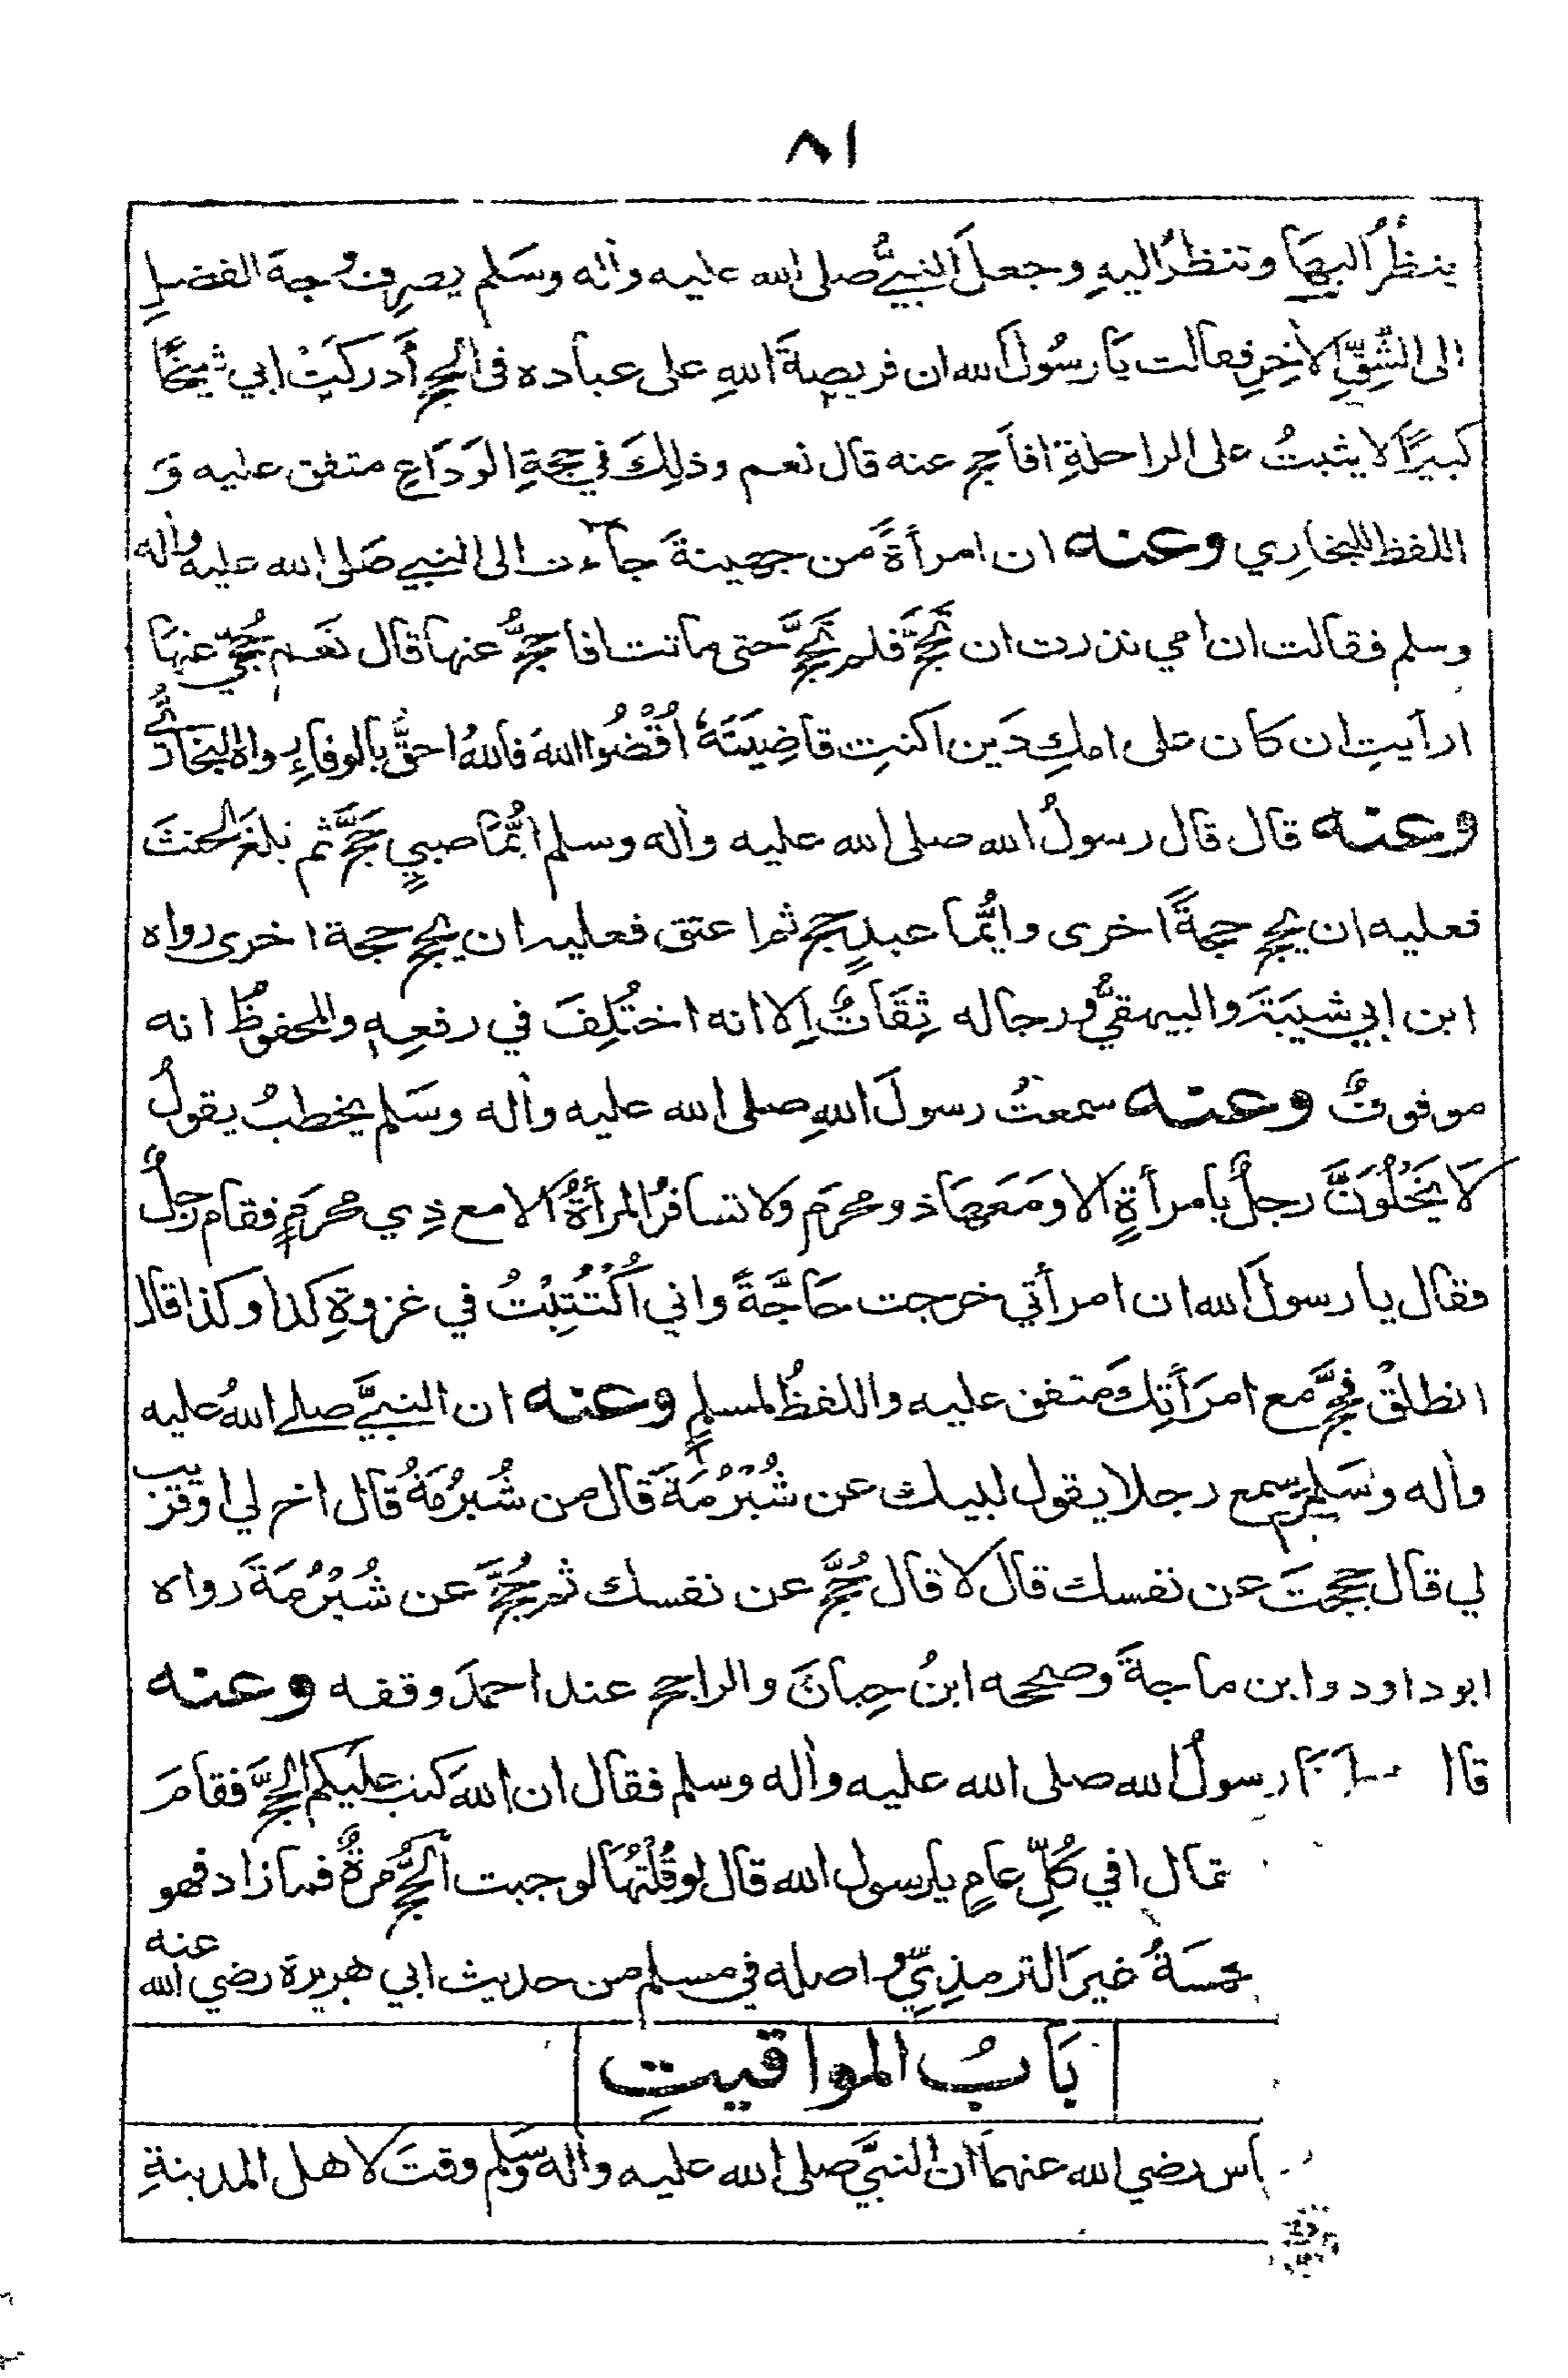 ٨١
ينظُرُ اليهَا وتنظرُ اليهِ وجعلَ النبيُّ صلى الله عليه واٰله وسَلم يصرِف وُجهَ الفضلِ
الى الشِّقِّ الاٰخِرِ فقالت يَا رسُولَ الله ان فريضةَ اللهِ على عباده فى الحجِ أَدركَتْ ابي شيخًا
كبيرًا لا يثبتُ على الراحلةِ افاَحج عنه قال نعم وذلِكَ في حجةِ الوَدَاعِ متفق عليه وَ
اللفظ للبخارِي وعنه ان امرأةً من جهينةَ جآءت الى النبي صَلى الله عليه واٰله
وسلم فقالت ان امي نذرت ان تَحُجَّ فلم تَحُجَّ حتى ماتت افاحجُّ عنها قال نَعَم حُجِّي عنهَا
ارأيتِ ان كان على امكِ دَين اكنتِ قاضِيَتَهُ اُقْضُوا اللهَ فاللهُ احقُّ بالوفاءِ رواه البخاريُّ
وعنه قال قال رسولُ الله صلى الله عليه واٰله وسلم ايُّمَا صبيٍ حَجَّ ثم بلغَ الحنثَ
فعليه ان يحج حجةً اخرى وايُّما عبدٍ حج ثم اعتق فعليه ان يحج حجة اخرى رواه
ابن ابي شيبَةَ والبيهقيُّ ورجاله ثِقَاتٌ اِلا انه اختُلِفَ في رفعِهٖ والمحفوظُ انه
موقوفٌ وعنه سمعتُ رسولَ اللهِ صلى الله عليه واٰله وسَلم يخطبُ يقولُ
لَا يَخْلُوَنَّ رجلٌ بامرأةٍ الا ومَعَهَا ذو محرَم ولا تسافرُ المرأةُ الا مع ذِي محرَمٍ فقام رجلٌ
فقال يا رسولَ الله ان امرأتي خرجت حَاجَّةً واني اُكْتُتِبْتُ في غزوةِ كذا وكذا قال
انطلقْ فحُجَّ مع امرَأتِكَ متفق عليه واللفظُ لمسلمٍ وعنه ان النبيَّ صلى اللهُ عليه
واٰله وسَلم سمع رجلا يقول لبيك عن شُبْرُمَةَ قال من شُبرُمَةُ قال اخ لي او قريب
لي قال حججتَ عن نفسك قال لا قال حُجَّ عن نفسك ثم حُجَّ عن شُبْرُمَةَ رواه
ابو داود وابن ماجةَ وصححه ابنُ حِبانَ والراجح عند احمدَ وقفه وعنه
رسولُ الله صلى الله عليه واٰله وسلم فقال ان اللهَ كتب عليكم الحجَّ فقامَ
افي كُلِّ عامٍ يا رسول الله قال لو قُلْتُهَا لوجبت الحجُّ مرةٌ فما زاد فهو
غيرَ الترمذِيِّ واصله في مسلم من حديث ابي هريرة رضي الله عنه
بَابُ المواقيتِ
رضي الله عنهما ان النبيَّ صلى الله عليه واٰله وسَلم وقتَ لاهل المدينةِ